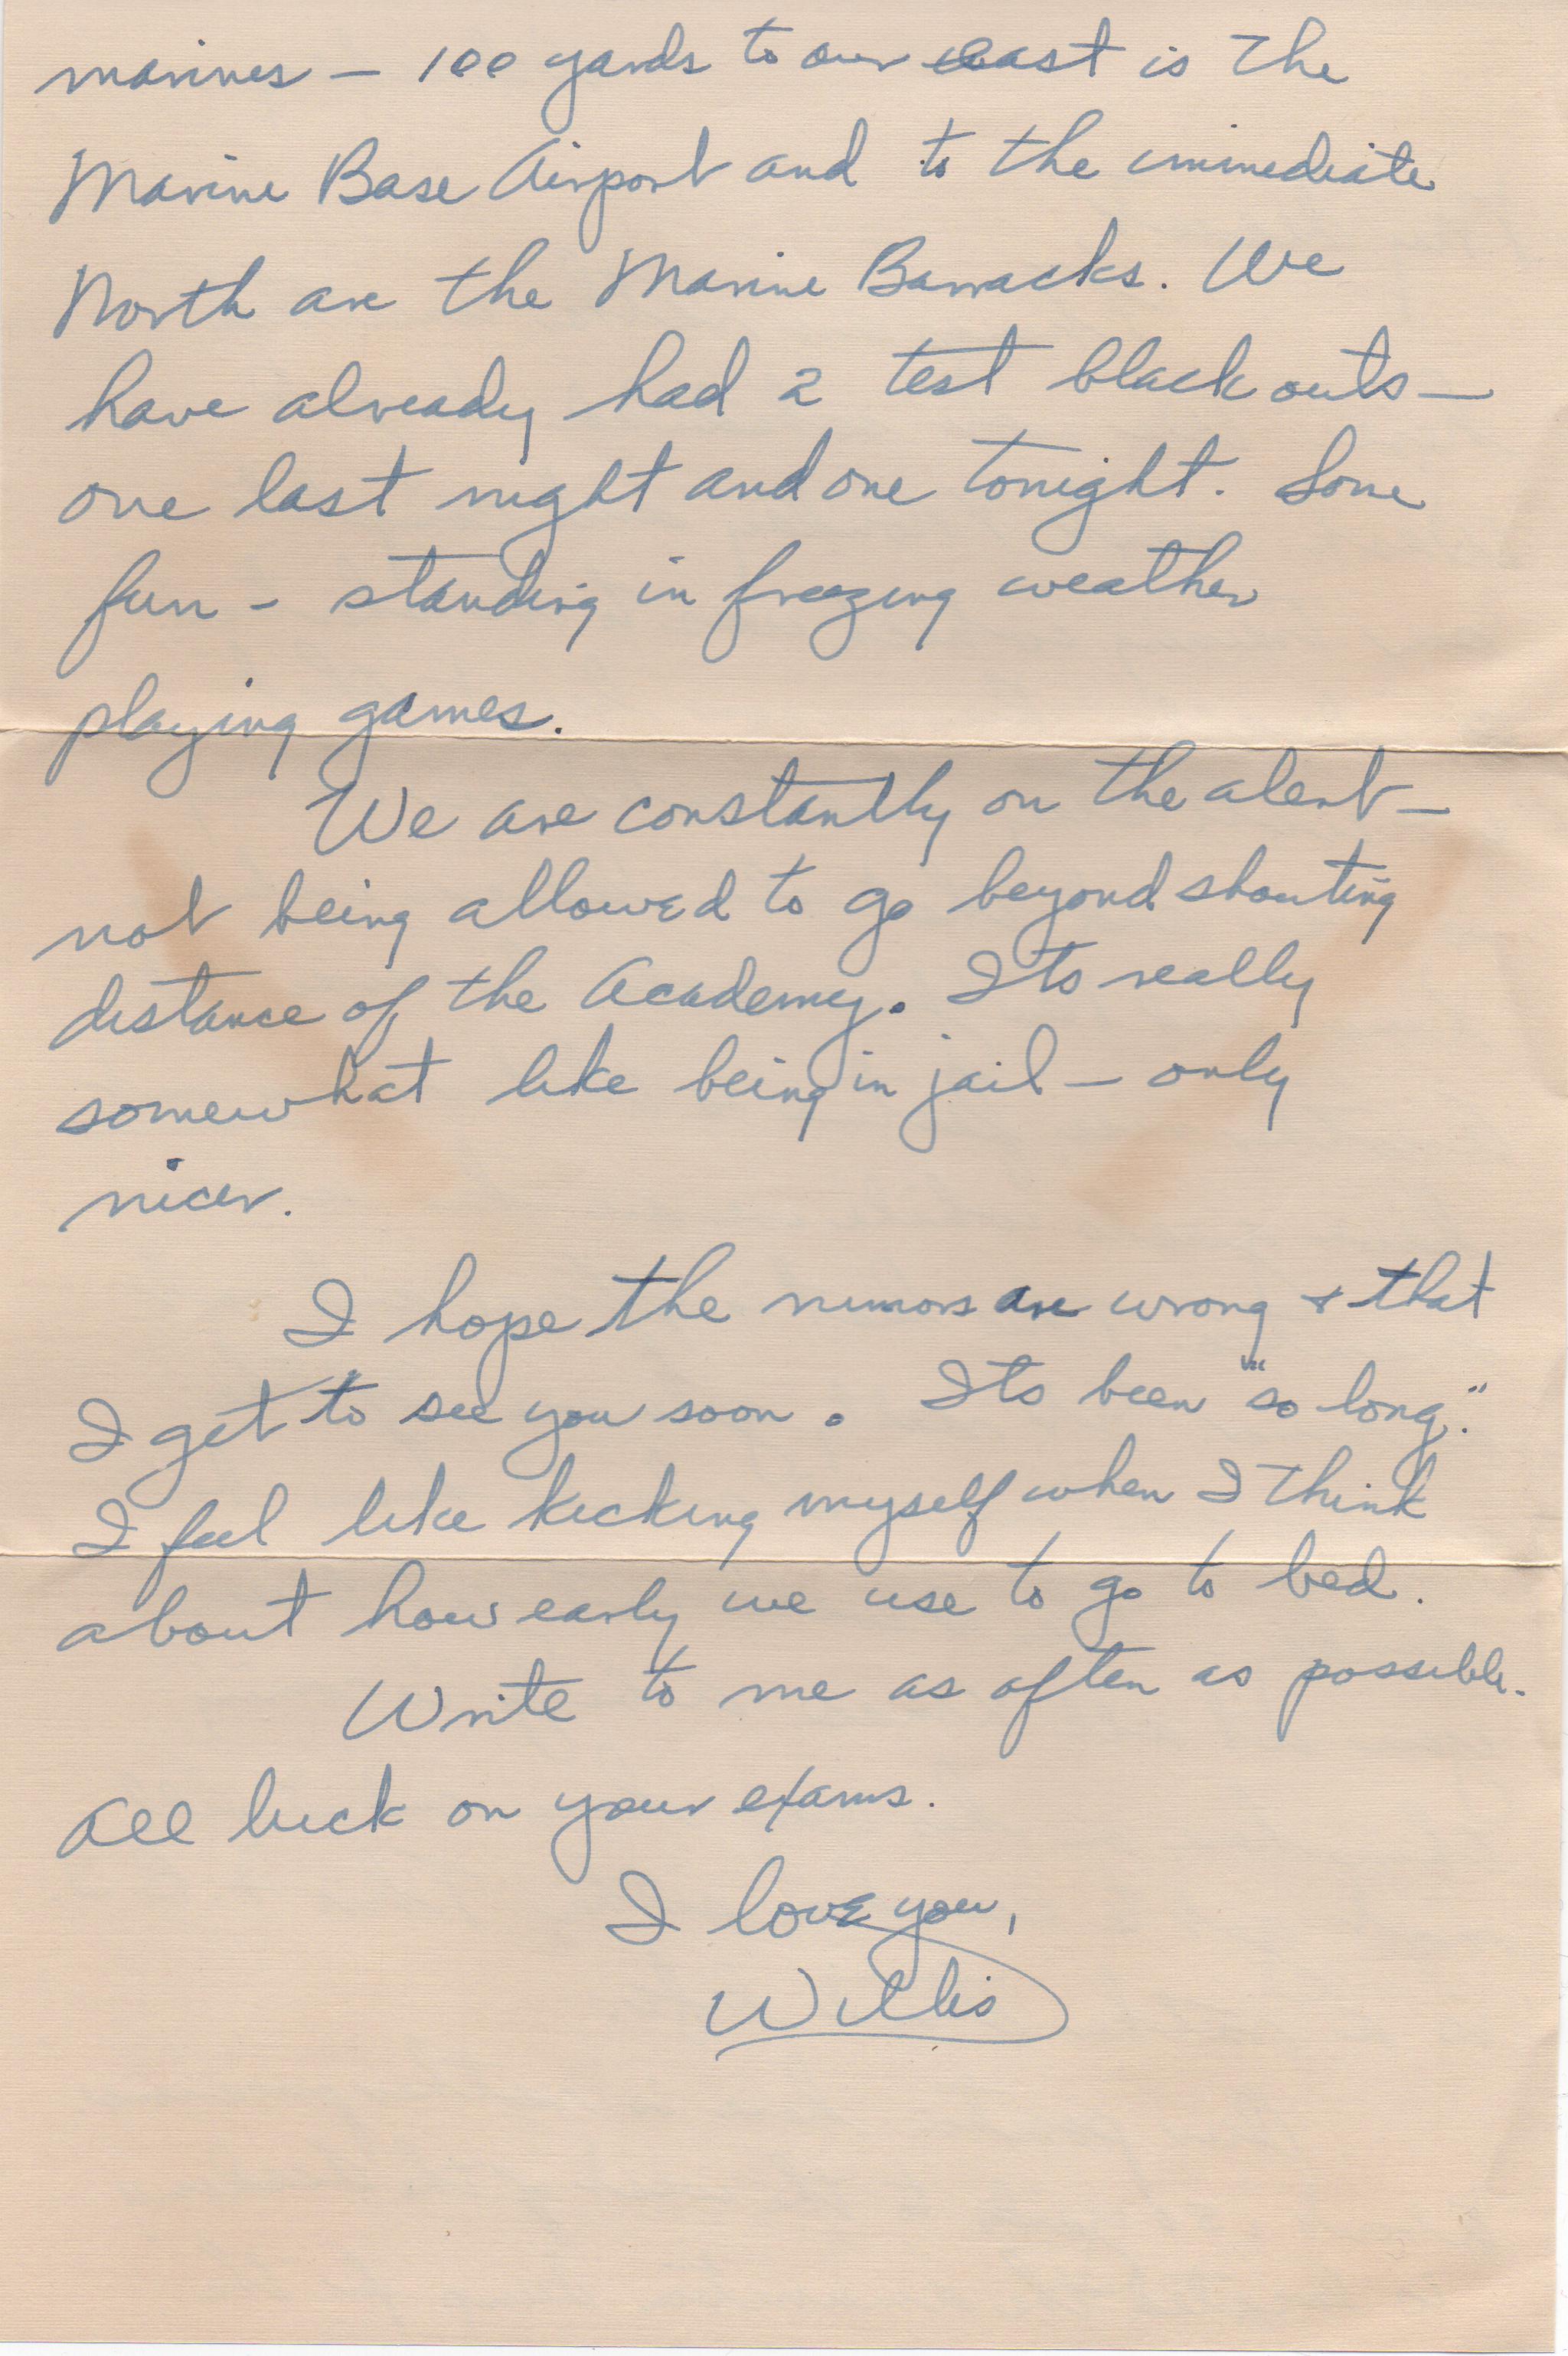 marines – 100 yards to our east is the
Marine Base Airport and to the immediate
North are the Marine Barracks. We
have already had 2 test black outs –
one last night and one tonight. Some
fun – standing in freezing weather
playing games.
We are constantly on the alert –
not being allowed to go beyond shouting
distance of the Academy. Its really
somewhat like being in jail – only
nicer.
I hope the rumors are wrong & that
I get to see you soon. Its been "so long."
I feel like kicking myself when I think
about how early we use to go to bed.
Write to me as often as possible.
All luck on your exams.
I love you,
Willis